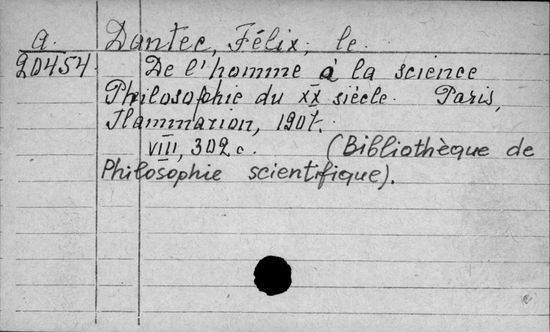 a. Dantec, Félix, le.
20454. De l'homme à la science
Philosophie du XX siècle. Paris,
Flammarion, 1907.
VIII, 302 c. (Bibliothèque de
Philosophie scientifique).